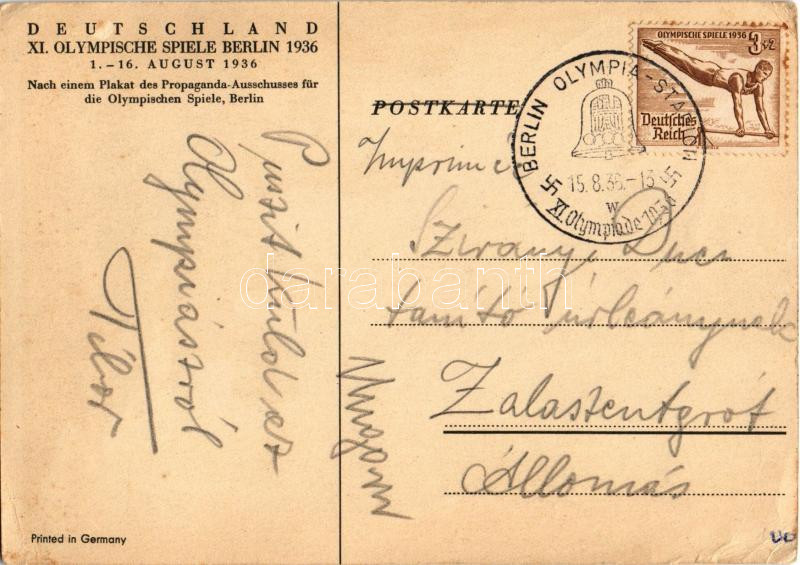 DEUTSCHLAND
XI. OLYMPISCHE SPIELE BERLIN 1936
1.-16. AUGUST 1936
Nach einem Plakat des Propaganda-Ausschusses für
die Olympischen Spiele, Berlin
Puszit küld az
Olympiászról
Tibor
Printed in Germany
POSTKARTE
OLYMPISCHE SPIELE 1936 3+2
Deutsches
Reich
BERLIN OLYMPIA-STADION
15.8.36.-13
w
XI. Olympiade 1936
Imprimé
Szirányi Duci
tanító úrleánynak
Zalaszentgrót
Állomás
Ungarn
darabanth